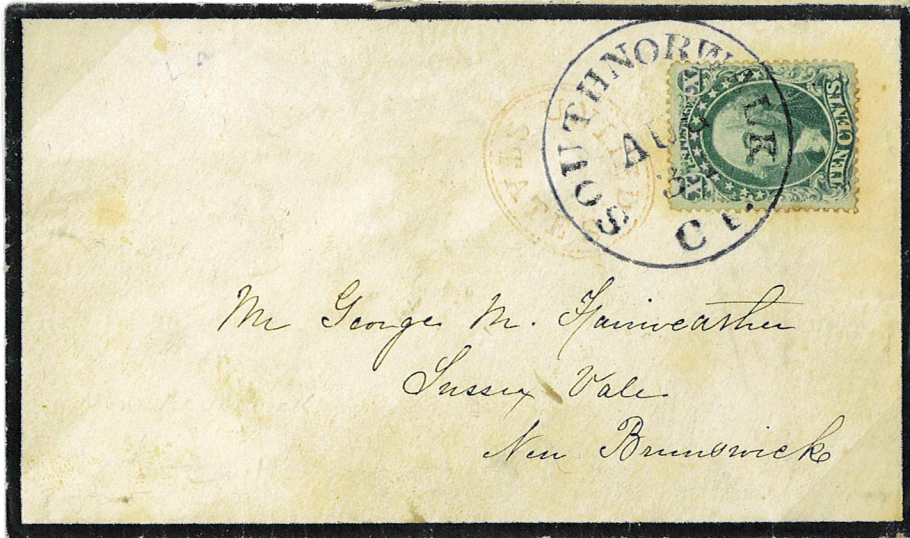 SOUTH NORWALK
AUG
3
CT.
UNITED
STATES
U.S. POSTAGE
X X
TEN CENTS
Mr George M. Fairweather
Sussex Vale
New Brunswick